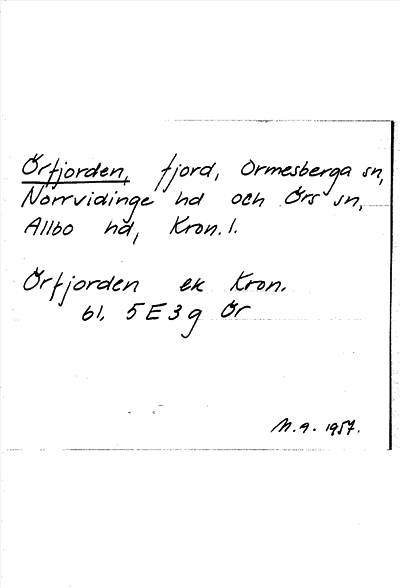 Örfjorden, fjord, Ormesberga sn,
Norrvidinge hd och Örs sn,
Allbo hd, Kron. l.
Örfjorden ek Kron.
bl. 5E3g Ör
M.A. 1957.